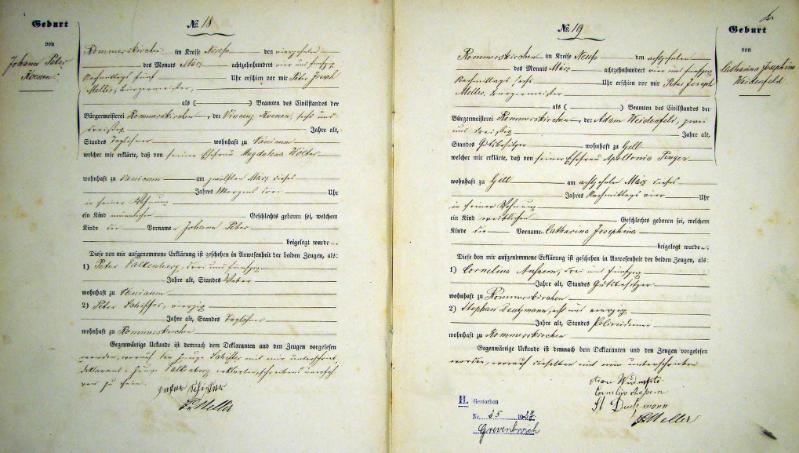 Geburt
von
Johann Peter
Koenen
No. 18
Rommerskirchen im Kreise Neuss den vierzehnten
des Monats März achtzehnhundert vier und fünfzig
Nachmittags fünf Uhr erschien vor mir Peter Joseph
Meller, Bürgermeister
als ( ) Beamten des Civilstandes der
Bürgermeisterei Rommerskirchen, der Vincenz Koenen, sechs und
dreißig Jahre alt,
Standes Taglöhner wohnhaft zu
welcher mir erklärte, daß von seiner Ehefrau Magdalena Wolter
wohnhaft zu am zwölften März dieses
Jahres Morgens drei Uhr
in seiner Wohnung
ein Kind männlichen Geschlechts geboren sei, welchem
Kinde die Vorname Johann Peter
beigelegt wurde.
Diese von mir aufgenommene Erklärung ist geschehen in Anwesenheit der beiden Zeugen, als:
1) Peter Vallenberg, drei und fünfzig
Jahre alt, Standes Weber
wohnhaft zu
2) Peter Schiffer, vierzig
Jahre alt, Standes Taglöhner
wohnhaft zu Rommerskirchen
Gegenwärtige Urkunde ist demnach dem Deklaranten und den Zeugen vorgelesen
worden, worauf der Zeuge Schiffer mit mir unterschrieb,
Deklarant u. Zeuge Vallenberg erklärten schreibens unerfah
ren zu sein.
Peter Schiffer
PJMeller
No. 19
Geburt
von
Catharina Josephina
Weidenfeld
Rommerskirchen im Kreise Neuss den achtzehnten
des Monats März achtzehnhundert vier und fünfzig
Nachmittags sechs Uhr erschien vor mir Peter Joseph
Meller, Bürgermeister
als ( ) Beamten des Civilstandes der
Bürgermeisterei Rommerskirchen, der Adam Weidenfeld, zwei
und dreißig Jahre alt,
Standes Gutsbesitzer wohnhaft zu Gill
welcher mir erklärte, daß von seiner Ehefrau Apollonia
wohnhaft zu Gill am achtzehnten März dieses
Jahres Nachmittags vier Uhr
in seiner Wohnung
ein Kind weiblichen Geschlechts geboren sei, welchem
Kinde die Vorname Catharina Josephina
beigelegt wurde.
Diese von mir aufgenommene Erklärung ist geschehen in Anwesenheit der beiden Zeugen, als:
1) Cornelius, drei und fünfzig
Jahre alt, Standes Gutsbesitzer
wohnhaft zu Rommerskirchen
2) Stephan, acht und vierzig
Jahre alt, Standes Polizeidiener
wohnhaft zu Rommerskirchen
Gegenwärtige Urkunde ist demnach dem Deklaranten und den Zeugen vorgelesen
worden, worauf dieselben mit mir unterschrieben
PJMeller
H. Gestorben
Nr. 65 1927
Grevenbroich